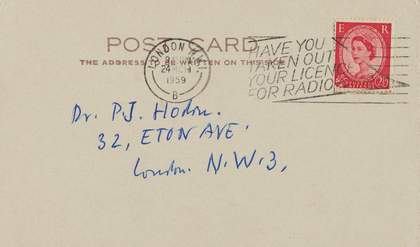 POST CARD
THE ADDRESS TO BE WRITTEN ON THIS SIDE
LONDON
24
1959
B
HAVE YOU
TAKEN OUT
YOUR LICEN
FOR RADIO
E R
Dr. P.J. Horton.
32, ETON AVE.
London. N.W.3,